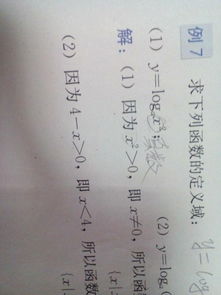 例 7 求下列函数的定义域: y = log
(1) y=logₐx²; (2) y=logₐ(
解: (1) 因为 x²>0, 即 x≠0, 所以函
{x|
(2) 因为 4-x>0, 即 x<4, 所以函数
{x|